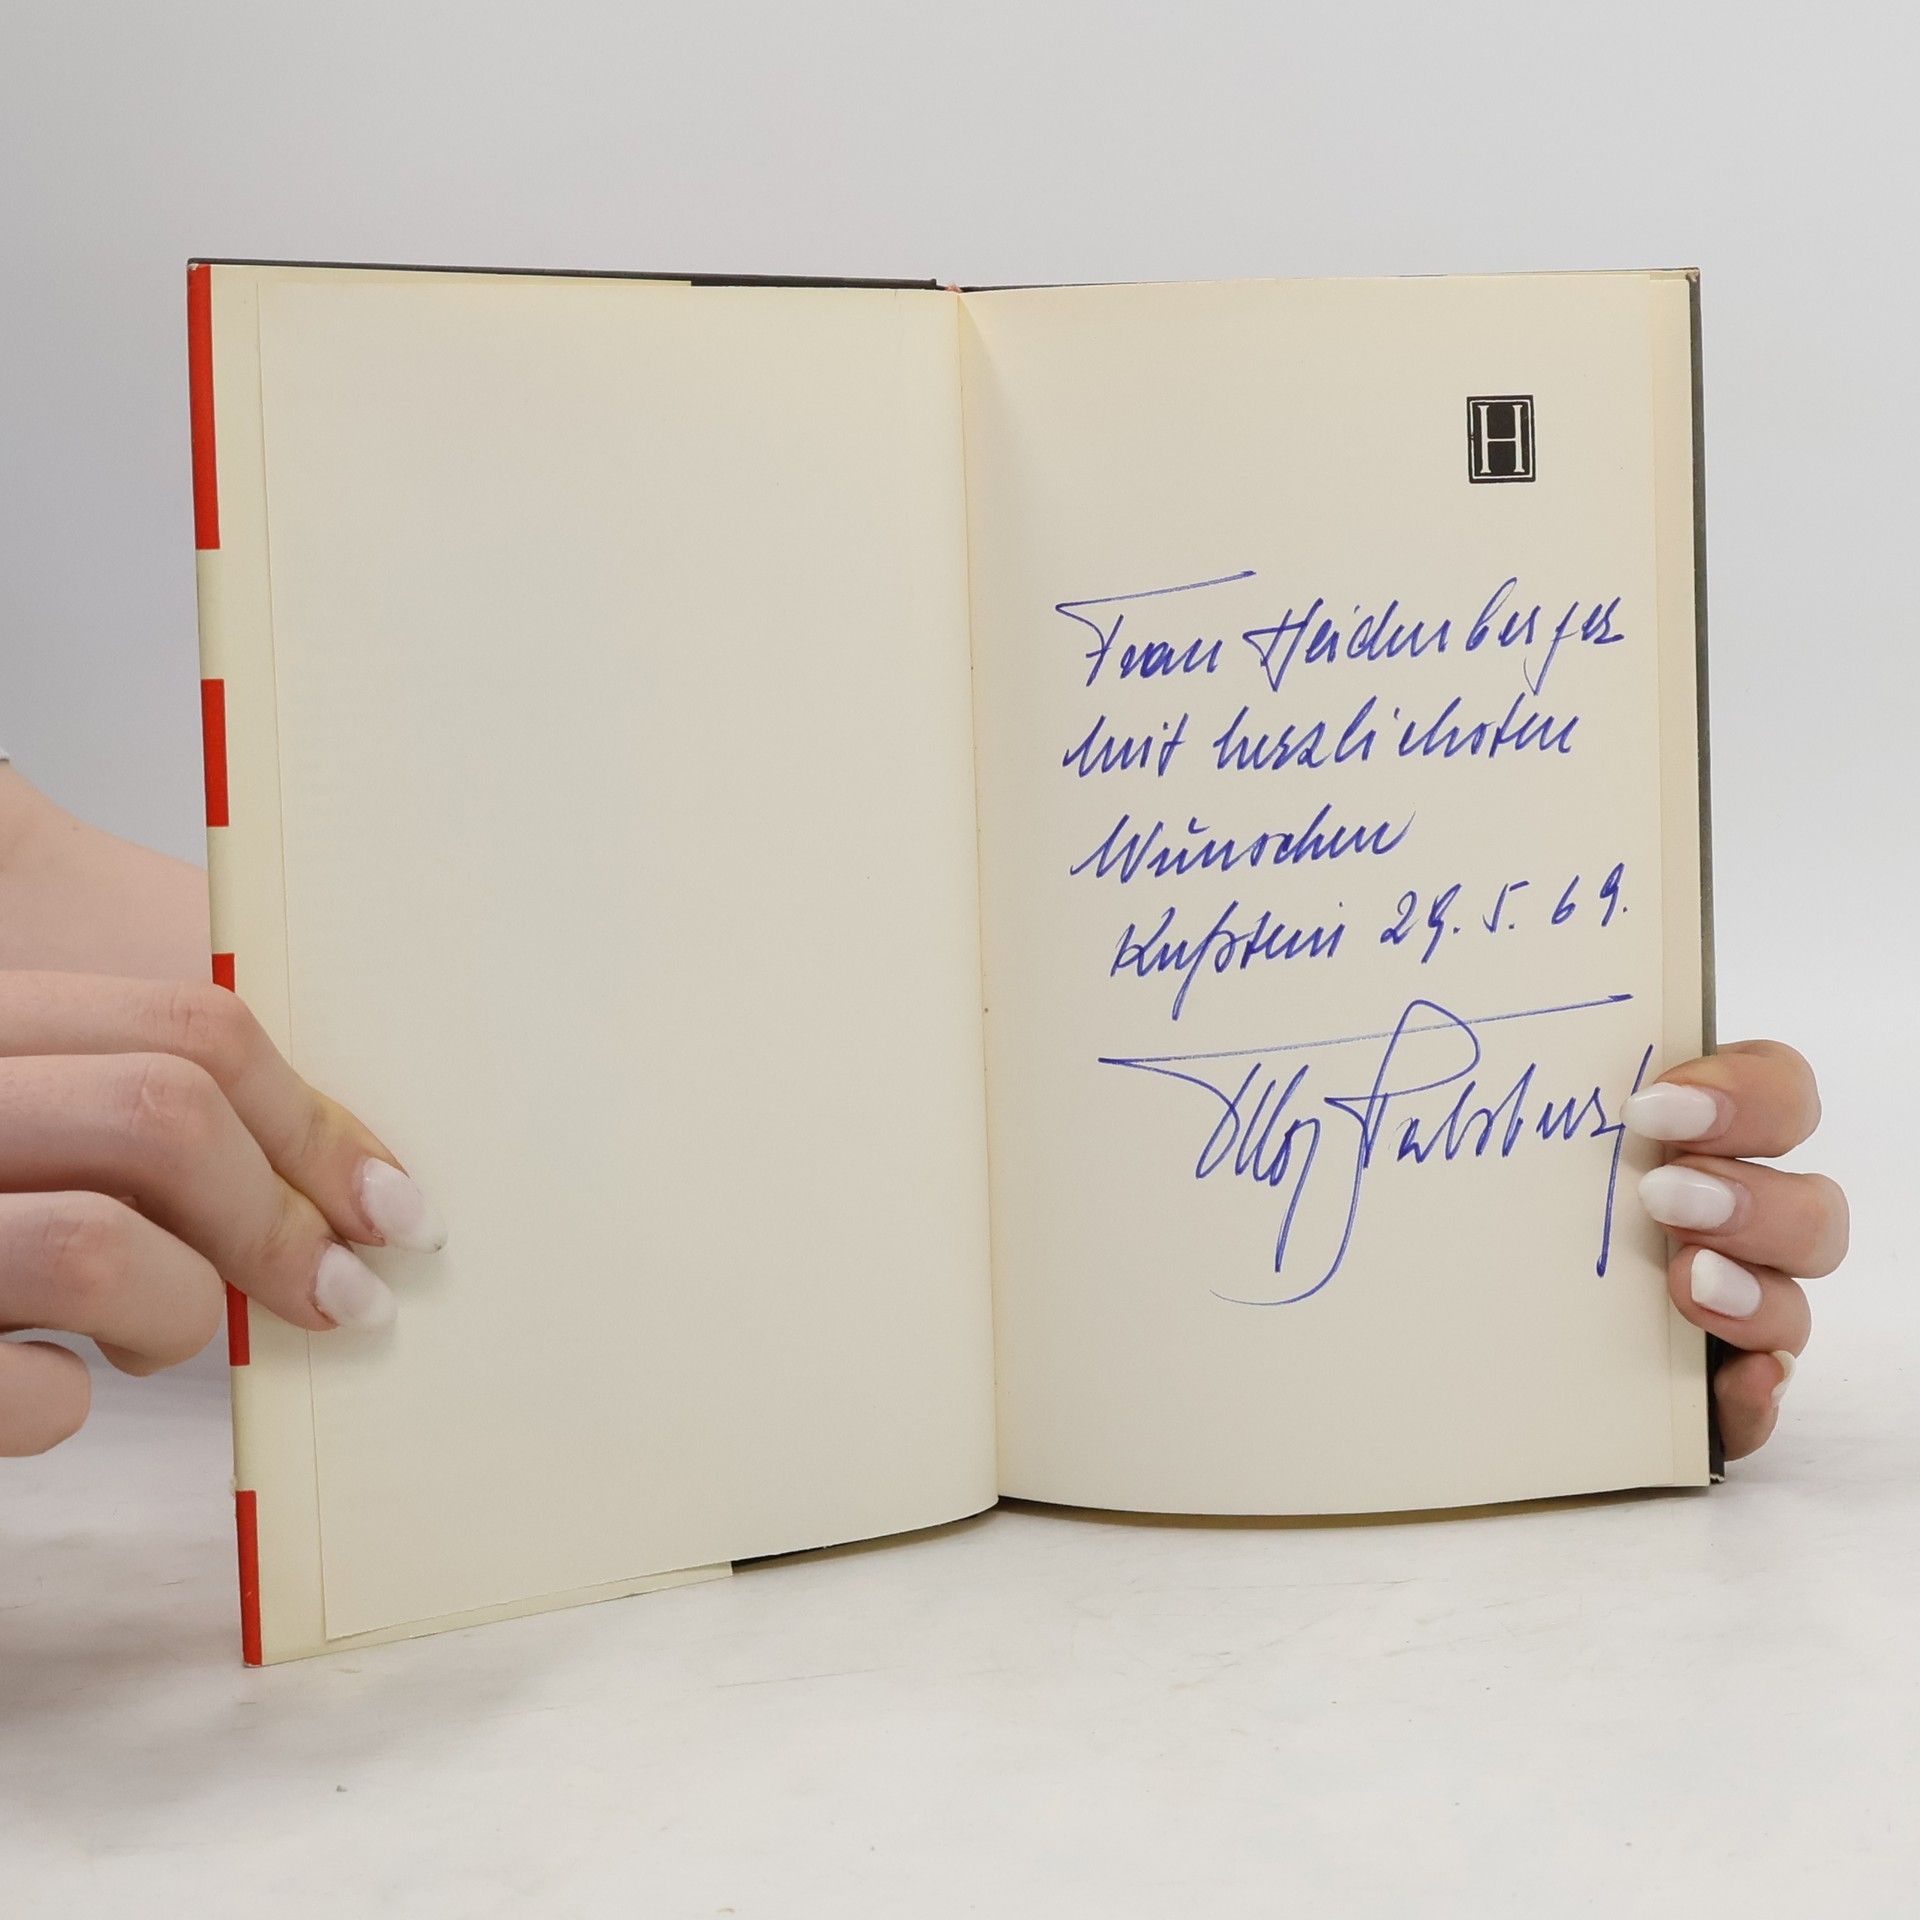 H
Frau Heidenberger
mit herzlichsten
Wünschen
Kufstein 29.5.69.